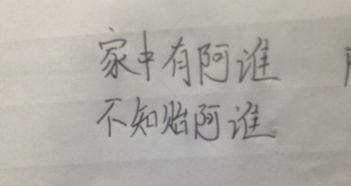 家中有阿谁
不知贻阿谁